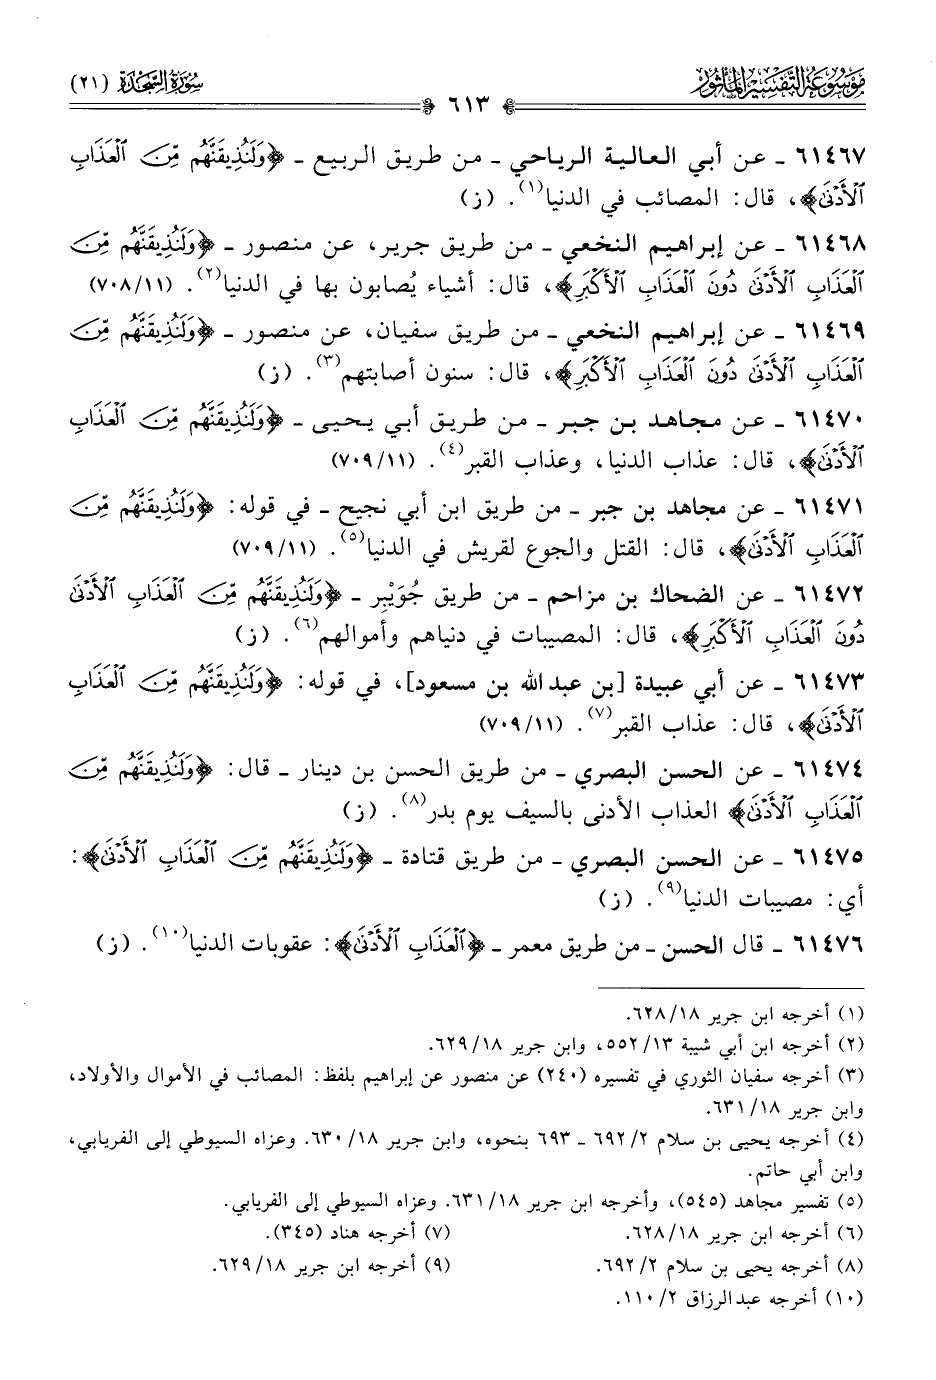 موسوعة التفسير المأثور
سورة السجدة (٢١)
٦١٣
٦١٤٦٧ ـ عن أبي العالية الرياحي ـ من طريق الربيع ـ ﴿وَلَنُذِيقَنَّهُم مِّنَ ٱلْعَذَابِ
ٱلْأَدْنَىٰ﴾، قال: المصائب في الدنيا(١). (ز)
٦١٤٦٨ ـ عن إبراهيم النخعي ـ من طريق جرير، عن منصور ـ ﴿وَلَنُذِيقَنَّهُم مِّنَ
ٱلْعَذَابِ ٱلْأَدْنَىٰ دُونَ ٱلْعَذَابِ ٱلْأَكْبَرِ﴾، قال: أشياء يُصابون بها في الدنيا(٢). (٧٠٨/١١)
٦١٤٦٩ ـ عن إبراهيم النخعي ـ من طريق سفيان، عن منصور ـ ﴿وَلَنُذِيقَنَّهُم مِّنَ
ٱلْعَذَابِ ٱلْأَدْنَىٰ دُونَ ٱلْعَذَابِ ٱلْأَكْبَرِ﴾، قال: سنون أصابتهم(٣). (ز)
٦١٤٧٠ ـ عن مجاهد بن جبر ـ من طريق أبي يحيى ـ ﴿وَلَنُذِيقَنَّهُم مِّنَ ٱلْعَذَابِ
ٱلْأَدْنَىٰ﴾، قال: عذاب الدنيا، وعذاب القبر(٤). (٧٠٩/١١)
٦١٤٧١ ـ عن مجاهد بن جبر ـ من طريق ابن أبي نجيح ـ في قوله: ﴿وَلَنُذِيقَنَّهُم مِّنَ
ٱلْعَذَابِ ٱلْأَدْنَىٰ﴾، قال: القتل والجوع لقريش في الدنيا(٥). (٧٠٩/١١)
٦١٤٧٢ ـ عن الضحاك بن مزاحم ـ من طريق جُوَيْبِر ـ ﴿وَلَنُذِيقَنَّهُم مِّنَ ٱلْعَذَابِ ٱلْأَدْنَىٰ
دُونَ ٱلْعَذَابِ ٱلْأَكْبَرِ﴾، قال: المصيبات في دنياهم وأموالهم(٦). (ز)
٦١٤٧٣ ـ عن أبي عبيدة [بن عبد الله بن مسعود]، في قوله: ﴿وَلَنُذِيقَنَّهُم مِّنَ ٱلْعَذَابِ
ٱلْأَدْنَىٰ﴾، قال: عذاب القبر(٧). (٧٠٩/١١)
٦١٤٧٤ ـ عن الحسن البصري ـ من طريق الحسن بن دينار ـ قال: ﴿وَلَنُذِيقَنَّهُم مِّنَ
ٱلْعَذَابِ ٱلْأَدْنَىٰ﴾ العذاب الأدنى بالسيف يوم بدر(٨). (ز)
٦١٤٧٥ ـ عن الحسن البصري ـ من طريق قتادة ـ ﴿وَلَنُذِيقَنَّهُم مِّنَ ٱلْعَذَابِ ٱلْأَدْنَىٰ﴾:
أي: مصيبات الدنيا(٩). (ز)
٦١٤٧٦ ـ قال الحسن ـ من طريق معمر ـ ﴿ٱلْعَذَابِ ٱلْأَدْنَىٰ﴾: عقوبات الدنيا(١٠). (ز)
(١) أخرجه ابن جرير ١٨/ ٦٢٨.
(٢) أخرجه ابن أبي شيبة ١٣/ ٥٥٢، وابن جرير ١٨/ ٦٢٩.
(٣) أخرجه سفيان الثوري في تفسيره (٢٤٠) عن منصور عن إبراهيم بلفظ: المصائب في الأموال والأولاد،
وابن جرير ١٨/ ٦٣١.
(٤) أخرجه يحيى بن سلام ٢/ ٦٩٢ ـ ٦٩٣ بنحوه، وابن جرير ١٨/ ٦٣٠. وعزاه السيوطي إلى الفريابي،
وابن أبي حاتم.
(٥) تفسير مجاهد (٥٤٥)، وأخرجه ابن جرير ١٨/ ٦٣١. وعزاه السيوطي إلى الفريابي.
(٦) أخرجه ابن جرير ١٨/ ٦٢٨.
(٧) أخرجه هناد (٣٤٥).
(٨) أخرجه يحيى بن سلام ٢/ ٦٩٢.
(٩) أخرجه ابن جرير ١٨/ ٦٢٩.
(١٠) أخرجه عبدالرزاق ٢/ ١١٠.